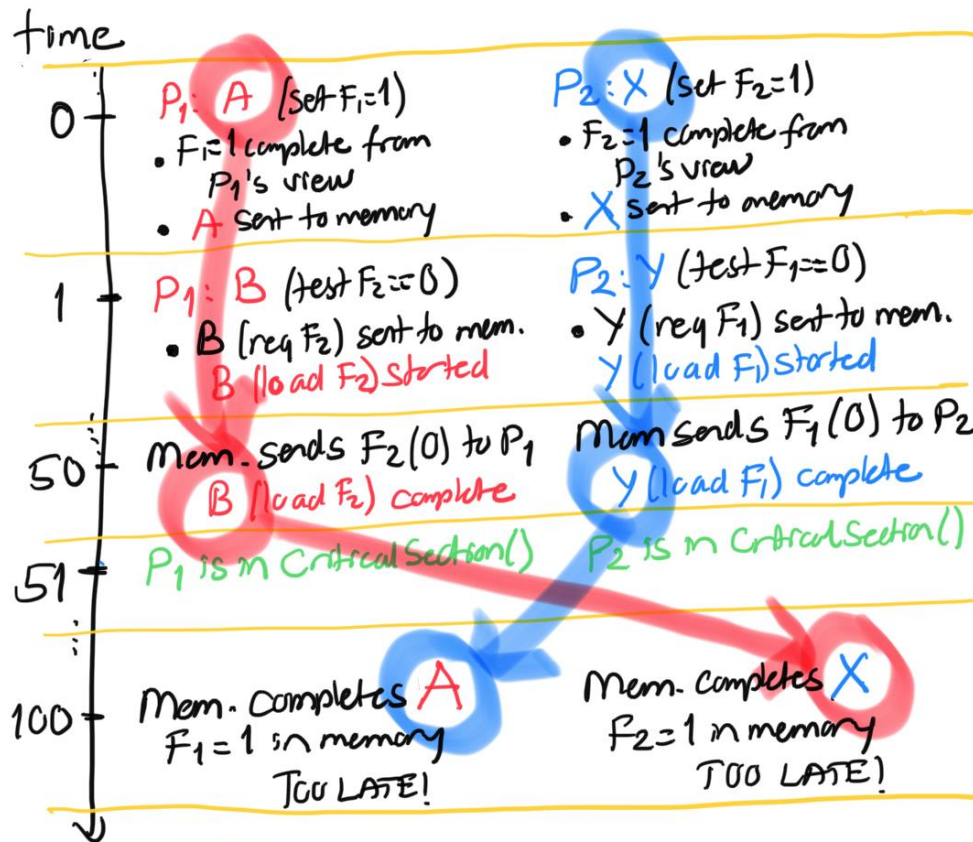 time
0
P₁: A (set F₁=1)
• F₁=1 complete from
P₁'s view
• A sent to memory
P₂: X (set F₂=1)
• F₂=1 complete from
P₂'s view
• X sent to memory
1
P₁: B (test F₂==0)
• B (req F₂) sent to mem.
B (load F₂) started
P₂: Y (test F₁==0)
• Y (req F₁) sent to mem.
Y (load F₁) started
50
Mem. sends F₂(0) to P₁
B (load F₂) complete
Mem sends F₁(0) to P₂
Y (load F₁) complete
51
P₁ is in CriticalSection()
P₂ is in CriticalSection()
100
Mem. completes A
F₁=1 in memory
TOO LATE!
Mem. completes X
F₂=1 in memory
TOO LATE!